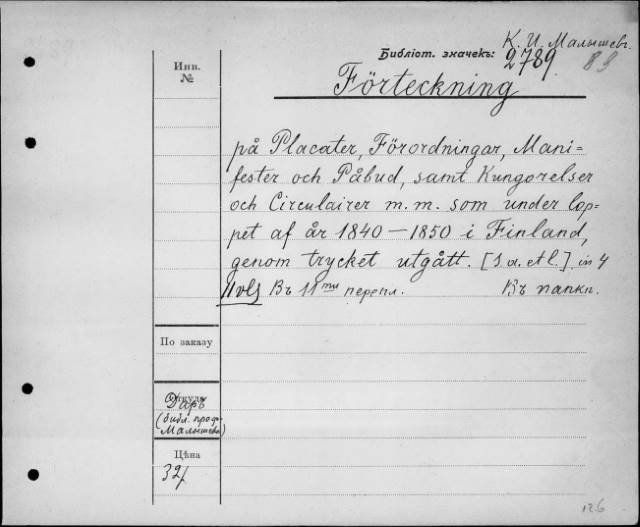 К. И. Малышев.
Инв.
№
Библіот. значекъ: 2789. 89
Förteckning
på Placater, Förordningar, Mani=
fester och Påbud, samt Kungörelser
och Circulairer m. m. som under lop=
pet af år 1840—1850 i Finland,
genom trycket utgått. [S. a. et l.]. in 4
11 vls Въ 11ти перепл. Въ папкп.
По заказу
Откуда
Даръ
(библ. проф.
Малышева)
Цѣна
32/
126